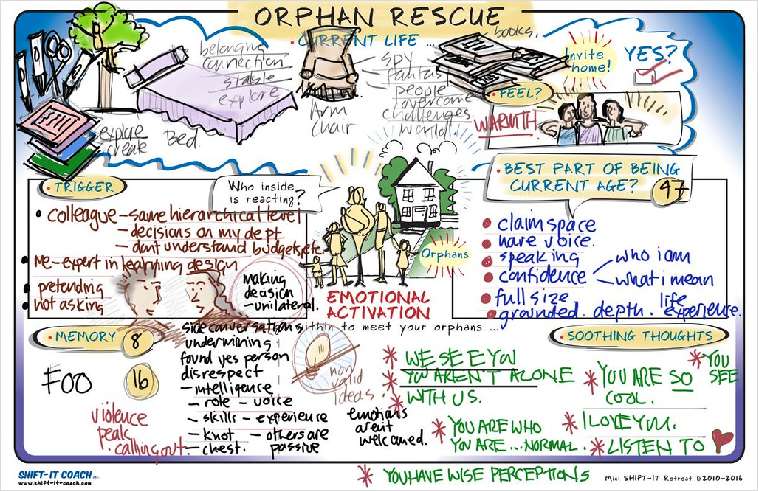 ORPHAN RESCUE
• CURRENT LIFE ...
belonging
connection
stable
explore
explore
create
Bed
Arm
chair
SPY
fantasy
people
overcome
challenges
world
books
Invite
home!
YES?
• FEEL?
WARMTH
• TRIGGER
• colleague – same hierarchical level
– decisions on my dept
– dont understand budgets, etc
• Me – expert in learning design
• pretending
• not asking
Who inside
is reacting?
making
decision
– unilateral.
Orphans
EMOTIONAL
ACTIVATION
• BEST PART OF BEING
CURRENT AGE?
47
• claim space
• have voice.
• speaking
• confidence
who i am
what i mean
• full size
• grounded. depth. life experience.
• MEMORY
8
16
FOO
violence
peak
calling out
side conversations
undermining
found yes person
disrespect
– intelligence
– role – voice
– skills – experience
– knot – others are
chest. passive
within to meet your orphans ...
11
non
valid
ideas.
emotions
arent
welcomed.
• SOOTHING THOUGHTS
* WE SEE YOU
* YOU AREN'T ALONE
* WITH US.
* YOU ARE SO
COOL.
* YOU
SEE
* YOU ARE WHO
YOU ARE ... NORMAL.
* I LOVE YOU.
* LISTEN TO
* YOU HAVE WISE PERCEPTIONS
SHIFT-IT COACH
www.shift-it-coach.com
Mini SHIFT-IT Retreat ©2010-2016